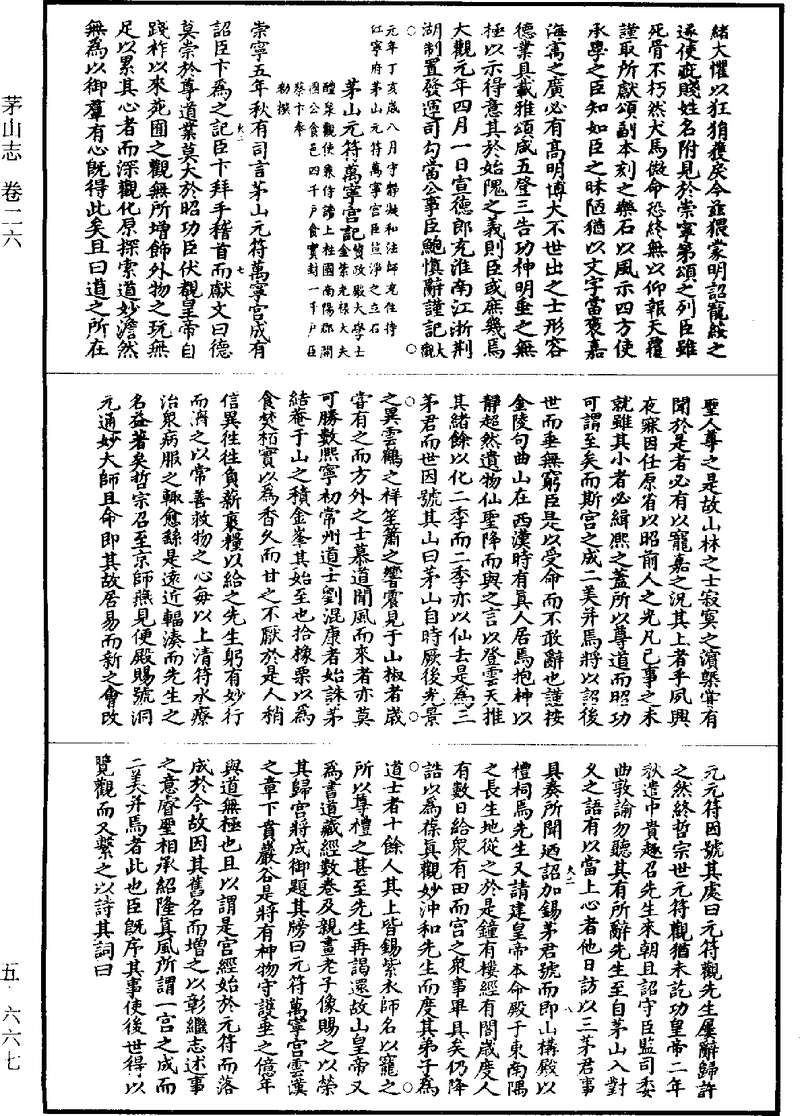 茅山志 卷二六
五·六六七
緒大懼以狂猖獲戾今茲猥蒙明詔寵綏之
遂使疵賤姓名附見於崇寧第頌之列臣雖
死骨不朽然犬馬微命恐終無以仰報天覆
謹取所獻頌副本刻之樂石以風示四方使
承學之臣知如臣之昧陋猶以文字當褒嘉
海寓之廣必有高明博大不世出之士形容
德業具載雅頌咸五登三告功神明垂之無
極以示得意其於始隗之義則臣或庶幾焉
大觀元年四月一日宣德郎充淮南江浙荆
湖制置發運司勾當公事臣鮑慎辭謹記大觀
元年丁亥歲八月守靜凝和法師充住持
江寧府茅山元符萬寧宮臣笪淨之立石
茅山元符萬寧宮記
資政殿大學士
金紫光祿大夫
醴泉觀使兼侍讀上柱國南陽郡開
國公食邑四千戶食實封一千戶臣
蔡卞奉
勑撰
崇寧五年秋有司言茅山元符萬寧宮成有
詔臣卞為之記臣卞拜手稽首而獻文曰德
莫崇於尊道業莫大於昭功臣伏觀皇帝自
踐祚以來苑囿之觀無所增飾外物之玩無
足以累其心者而深觀化原探索道妙澹然
無為以御羣有心既得此矣且曰道之所在
聖人尊之是故山林之士寂寞之濱槩嘗有
聞於是者必有以寵嘉之況其上者乎夙興
夜寐因任原省以昭前人之光凡已事之未
就雖其小者必緝熙之蓋所以尊道而昭功
可謂至矣而斯宮之成二美并焉將以詔後
世而垂無窮臣是以受命而不敢辭也謹按
金陵句曲山在西漢時有真人居焉抱神以
靜超然遺物仙聖降而與之言以登雲天推
其緒餘以化二季而二季亦以仙去是為三
茅君而世因號其山曰茅山自時厥後光景
之異雲鶴之祥笙簫之響震見于山椒者歲
嘗有之而方外之士慕道聞風而來者亦莫
可勝數熙寧初常州道士劉混康者始誅茅
結菴于山之積金峯其始至也拾橡栗以為
食焚栢實以為香久而甘之不厭於是人稍
信異往往負薪裹糧以給之先生躬有妙行
而濟之以常善救物之心毎以上清符水療
治衆病服之輒愈繇是遠近輻湊而先生之
名益著矣哲宗召至京師燕見便殿賜號洞
元通妙大師且命即其故居易而新之會改
元元符因號其處曰元符觀先生屢辭歸許
之然終哲宗世元符觀猶未訖功皇帝二年
秋遣中貴趣召先生來朝且詔守臣監司委
曲敦諭勿聽其有所辭先生至自茅山入對
乂之語有以當上心者他日訪以三茅君事
具奏所聞廼詔加錫茅君號而即山構殿以
禮祠焉先生又請建皇帝本命殿于東南隅
之長生地從之於是鐘有樓經有閣歲度人
有數日給衆有田而宮之衆事畢具矣仍降
誥以為葆真觀妙沖和先生而度其弟子為
道士者十餘人其上皆錫紫衣師名以寵之
所以尊禮之甚至先生再謁還故山皇帝又
為書道藏經數卷及親畫老子像賜之以榮
其歸宮將成御題其牓曰元符萬寧宮雲漢
之章下賁巖谷是將有神物守護垂之億年
與道無極也且以謂是宮經始於元符而落
成於今故因其舊名而增之以彰繼志述事
之意睿聖相承紹隆真風所謂一宮之成而
二美并焉者此也臣既序其事使後世得以
覽觀而又繫之以詩其詞曰